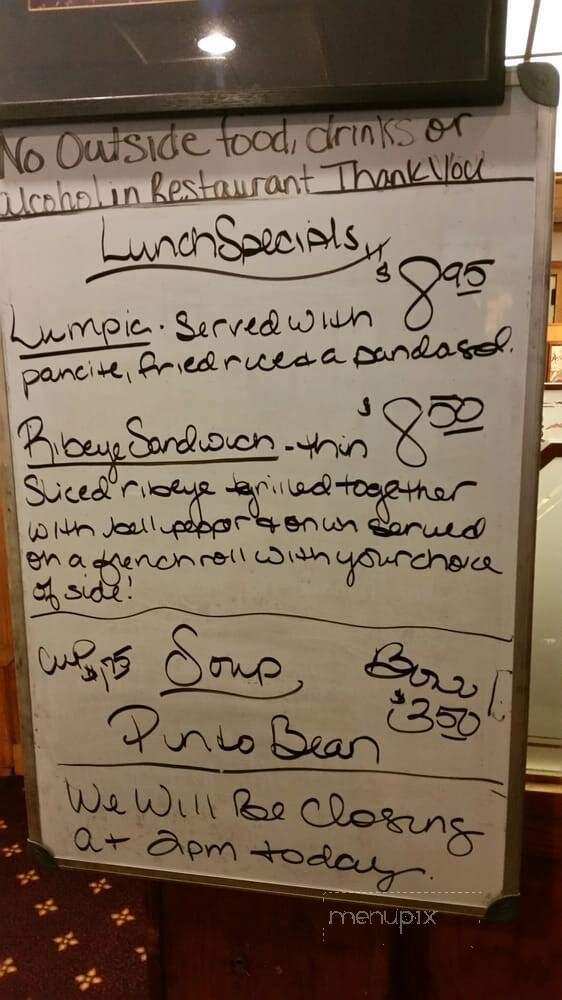 No Outside food, drinks or
alcohol in Restaurant Thank You
Lunch Specials
$8.95
Lumpia. Served with
pancite, fried rice & a pandasol.
$8.50
Ribeye Sandwich - thin
Sliced ribeye grilled together
with bell pepper & onion served
on a french roll with your choice
of side!
Cup Soup Bowl
$1.75 $3.50
Pinto Bean
We Will Be Closing
at 2pm today.
menupix